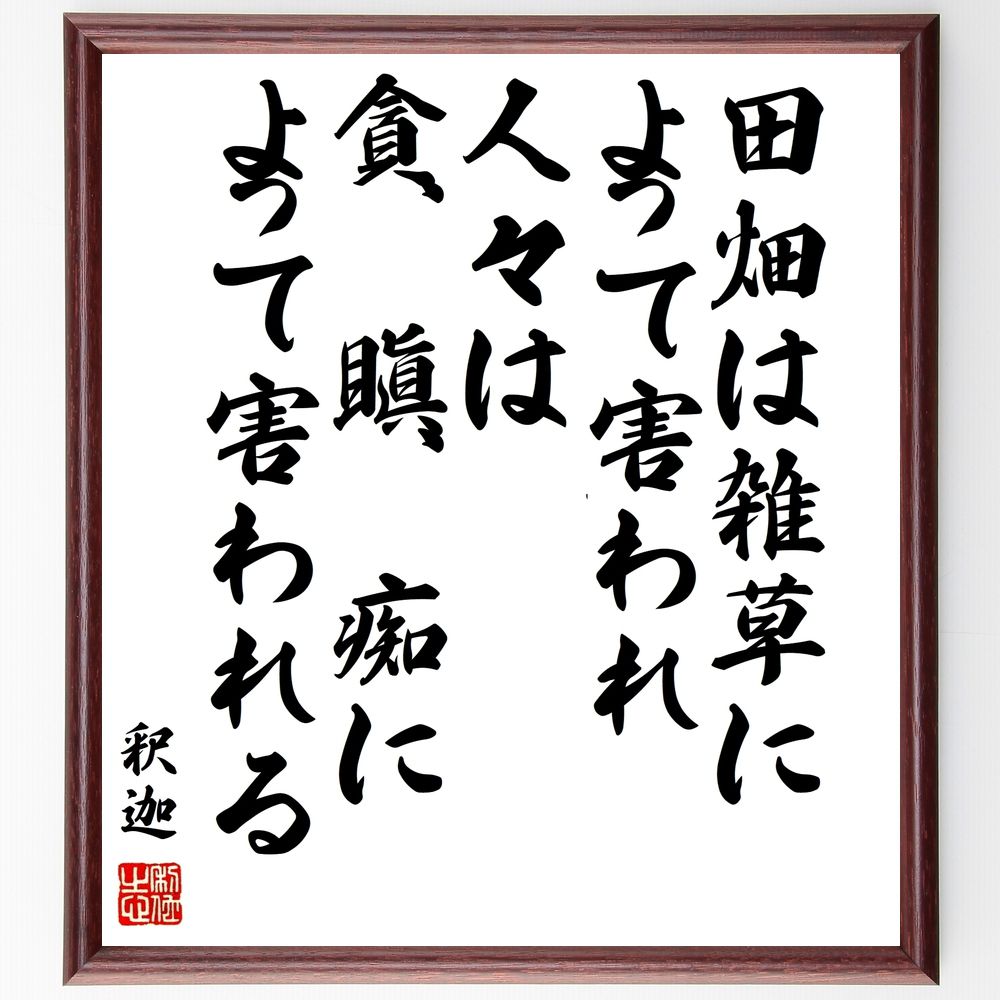 田畑は雑草に
よって害われ
人々は
貪 瞋 痴に
よって害われる
釈迦